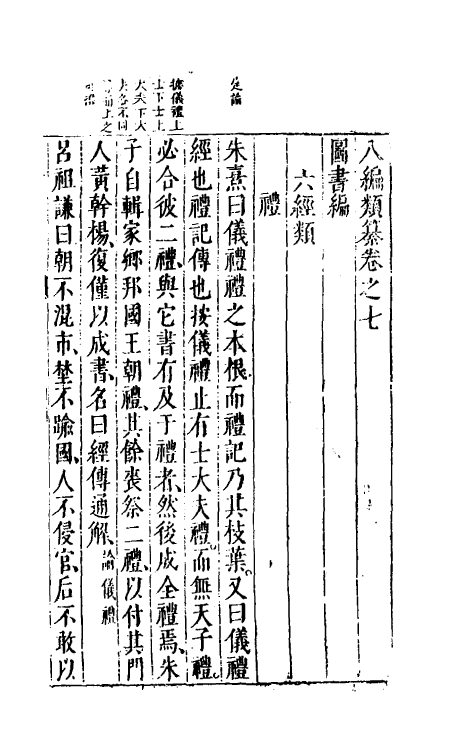 八編類纂卷之七
圖書編
六經類
禮
朱熹曰儀禮禮之本根而禮記乃其枝葉又曰儀禮
經也禮記傳也按儀禮止有士大夫禮而無天子禮
必合彼二禮與它書有及于禮者然後成全禮焉朱
子自輯家鄉邦國王朝禮其餘喪祭二禮以付其門
人黃幹楊復僅以成書名曰經傳通解論儀禮
呂祖謙曰朝不混市埜不踰國人不侵官后不敢以
定論
儀禮上
士下士上
大夫下大
夫名不同
上之